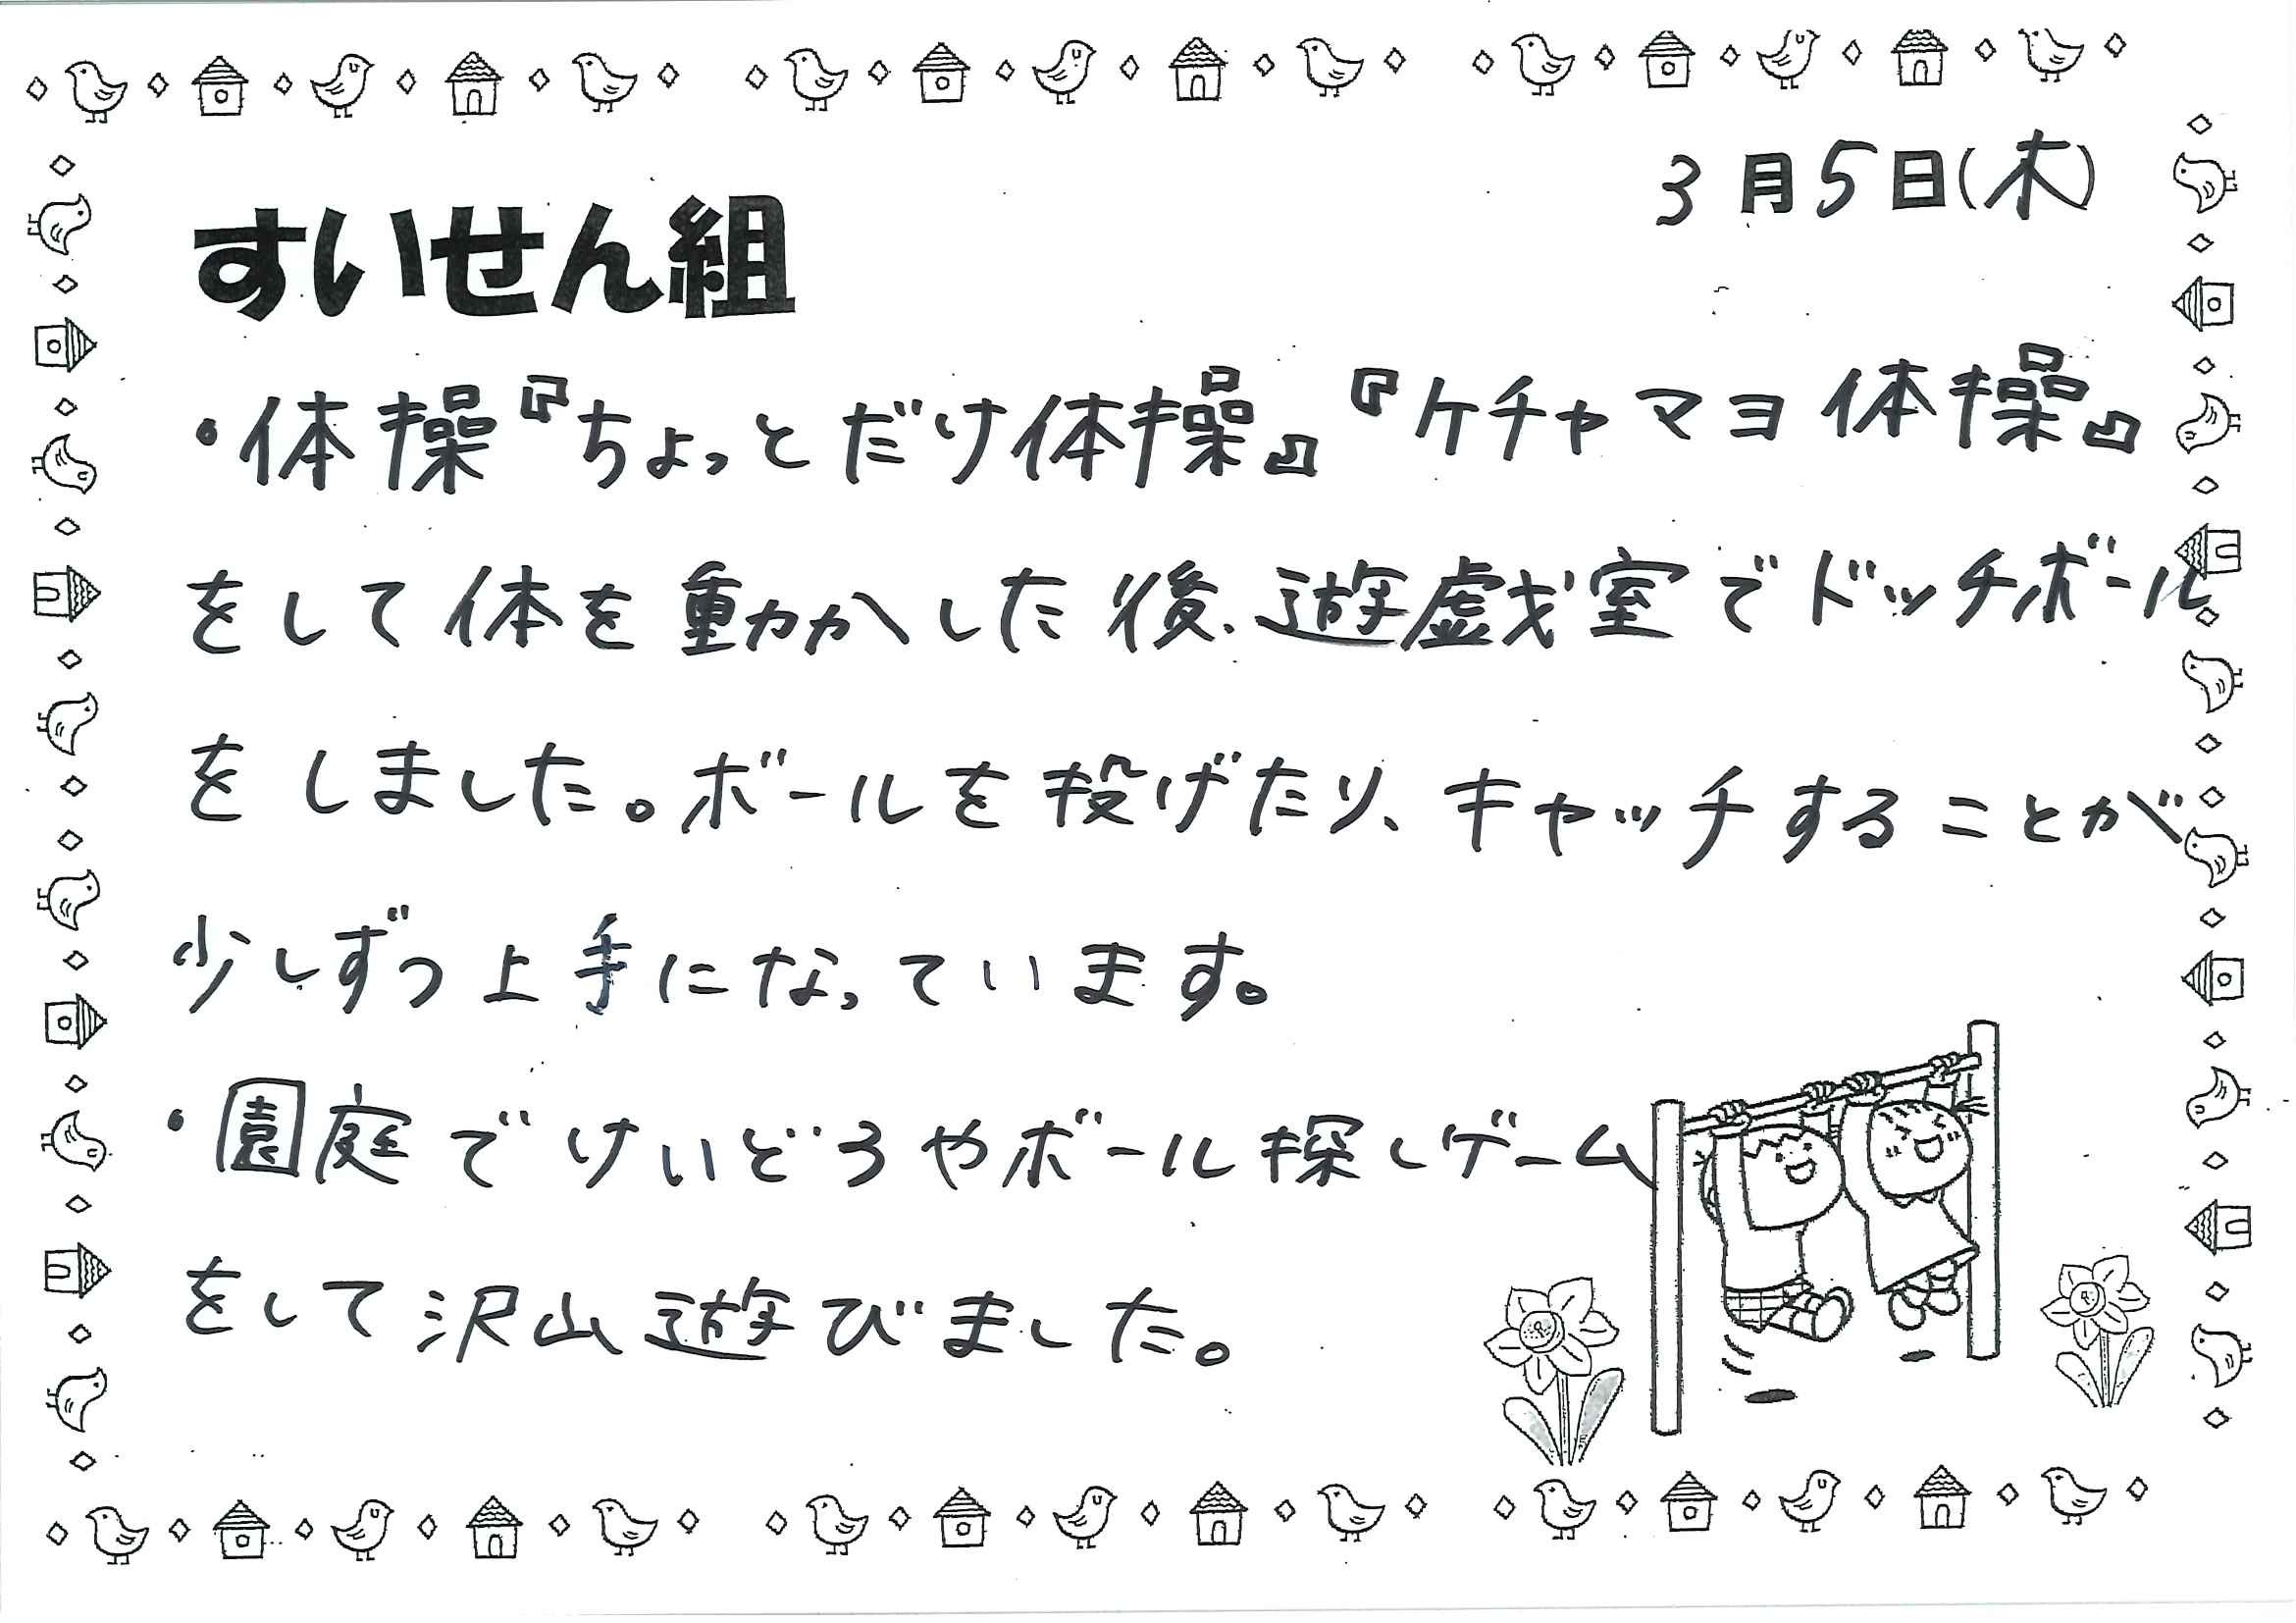 3月5日(木)
すいせん組
・体操『ちょっとだけ体操』『ケチャマヨ体操』
をして体を動かした後、遊戯室でドッチボール
をしました。ボールを投げたり、キャッチすることが
少しずつ上手になっています。
・園庭でけいどろやボール探しゲーム
をして沢山遊びました。